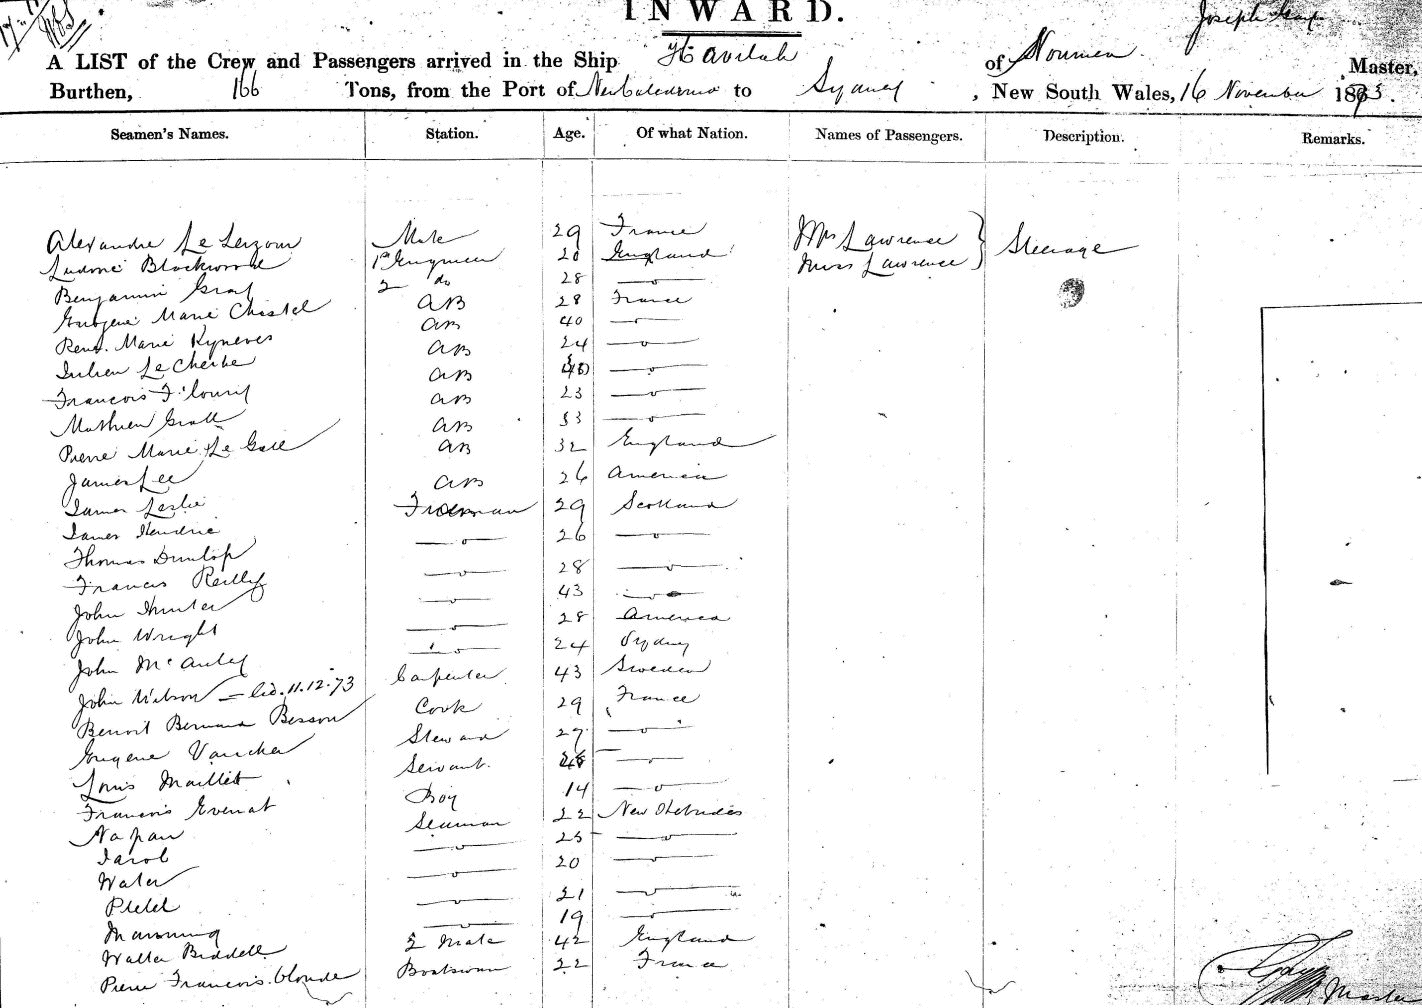 INWARD.
A LIST of the Crew and Passengers arrived in the Ship Havilah of Noumea Joseph Master,
Burthen, 166 Tons, from the Port of New Caledonia to Sydney, New South Wales, 16 November 1873.
Seamen's Names. Station. Age. Of what Nation. Names of Passengers. Description. Remarks.
Alexandre Le Mate 29 France Mrs Lawrence } Steerage
Blackwood 1st Engineer England Miss Lawrence
Benjamin 2 do 28 —o—
Marie AB 28 France
Marie AB 40 —o—
Julien Le AB 24 —o—
Francois AB —o—
Mathieu AB 23 —o—
Pierre Marie Le Gall AB 33 —o—
James Lee AB 32 England
James Leslie AB 26 America
James Hendrie Fireman 29 Scotland
Thomas Dunlop —o— 26 —o—
Francis Reilly —o— 28 —o—
John Hunter —o— 43 —o—
John Wright —o— 28 America
John McAuley —o— 24 Sydney
John Watson = 11.12.73 Carpenter 43 Sweden
Benoit Besson Cook 29 France
Eugene Steward 27 —o—
Louis Maillett Servant —o—
Francois Evenat Boy 14 —o—
Napan Seaman 22 New Hebrides
Jacob —o— 25 —o—
Water —o— 20 —o—
—o— 21 —o—
Manning —o— 19 —o—
Walter Biddell 2 Mate 42 England
Pierre Francois Boatswain 22 France
Master